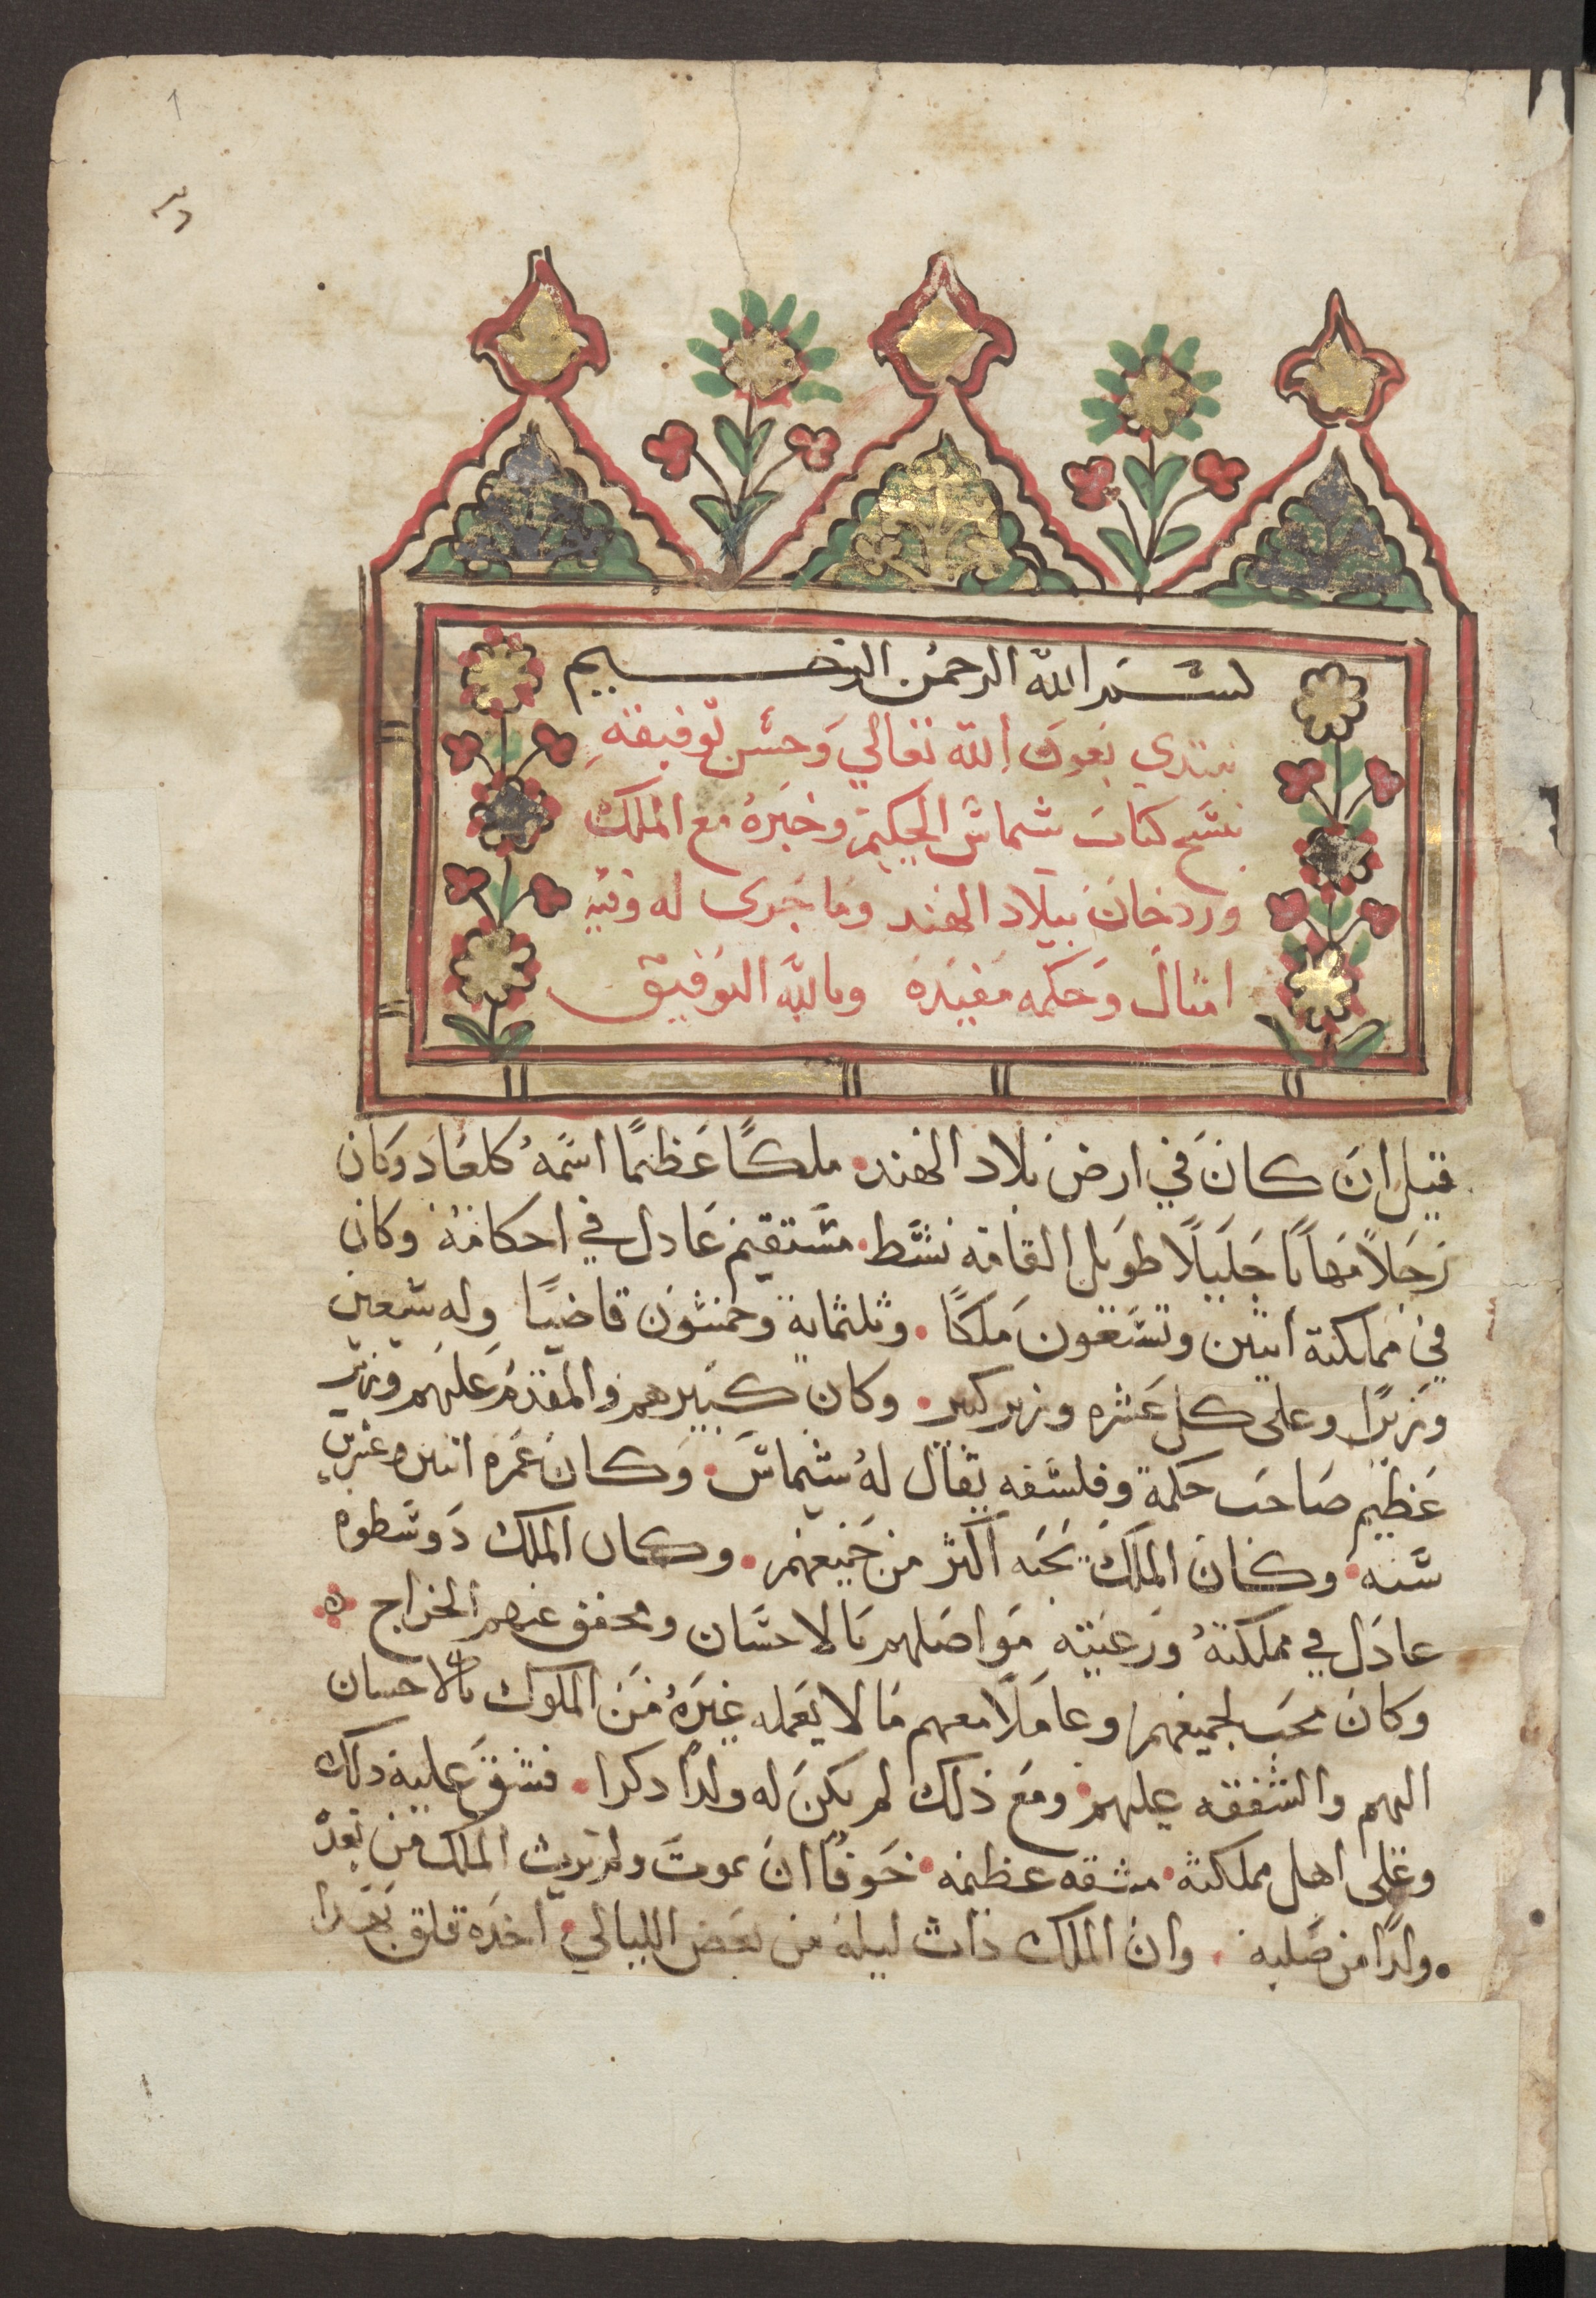 1
بسم الله الرحمن الرحيم
نبتدي بعون الله تعالي وحسن توفيقه
نسخ كتاب شيماس الحكيم وخبره مع الملك
وردخان ببلاد الهند وما جرى له وفيه
امثال وحكمه مفيده وبالله التوفيق
قيل ان كان في ارض بلاد الهند ملكًا عظيمًا اسمه كلعاد وكان
رجلاً مهابًا جليلًا طويل القامه نشط مستقيم عادل في احكامه وكان
في مملكته اثنين وتسعون ملكًا وثلثماية وخمسون قاضيًا وله سبعين
وزيرًا وعلى كل عشره وزير كبير وكان كبيرهم والمقدم عليهم وزير
عظيم صاحب حكمة وفلسفه يقال له شيماس وكان عمره اثنين وعشرين
سنه وكان الملك يحبه اكثر من جميعهم وكان الملك دو سطوه
عادل في مملكته ورعيته مواصلهم بالاحسان ومخفف عنهم الخراج
وكان محب لجميعهم وعاملًا معهم ما لا يعمله غيره من الملوك بالاحسان
اليهم والشفقه عليهم ومع ذلك لم يكن له ولدًا دكرا فشق عليه دلك
وعلى اهل مملكته مشقه عظيمه خوفًا ان يموت ولم يرث الملك من بعده
ولدًا من صلبه وان الملك ذات ليلة من بعض الليالي اخده قلق